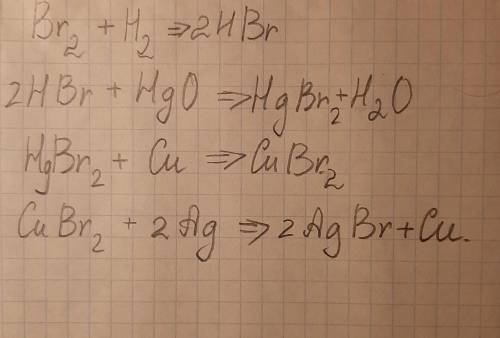 Br₂ + H₂ ⇒ 2HBr
2HBr + HgO ⇒ HgBr₂ + H₂O
HgBr₂ + Cu ⇒ CuBr₂
CuBr₂ + 2Ag ⇒ 2AgBr + Cu.